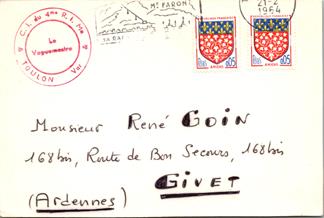 C.I. du 4ème R.I. Ma
Le
Vaguemestre
TOULON Var
MT FARON
SA RA
21-2
1964
REPUBLIQUE FRANCAISE
POSTES 0,05
AMIENS
POSTES 0,05
AMIENS
Monsieur René GOIN
168bis, Route de Bon Secours, 168bis
GIVET
(Ardennes)